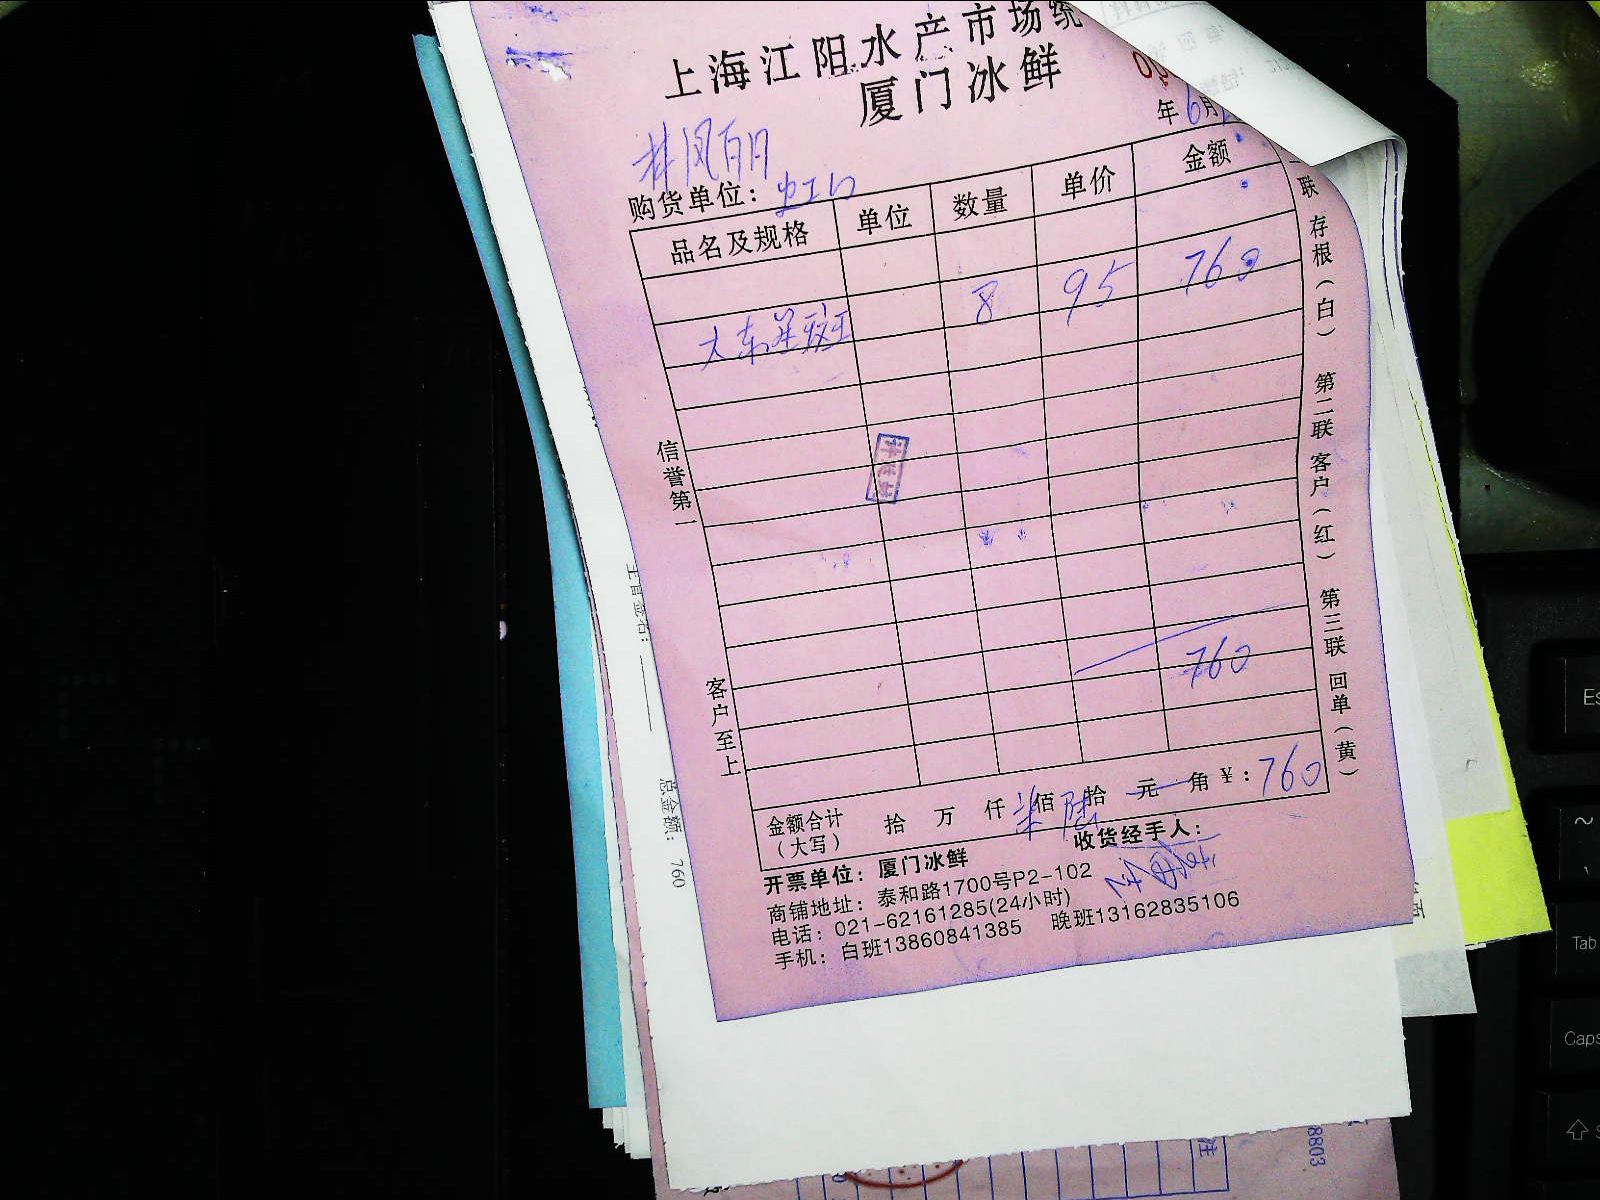 上海江阳水产市场统
厦门冰鲜
年6月
购货单位：虹口
品名及规格 单位 数量 单价 金额
大东星斑 8 95 760
760
金额合计（大写） 拾 万 仟 柒佰 陆拾 元 角 ￥：760
收货经手人：
开票单位：厦门冰鲜
商铺地址：泰和路1700号P2-102
电话：021-62161285(24小时)
手机：白班13860841385 晚班13162835106
信誉第一
客户至上
一联 存根（白） 第二联 客户（红） 第三联 回单（黄）
总金额： 760
8803
Tab
Caps